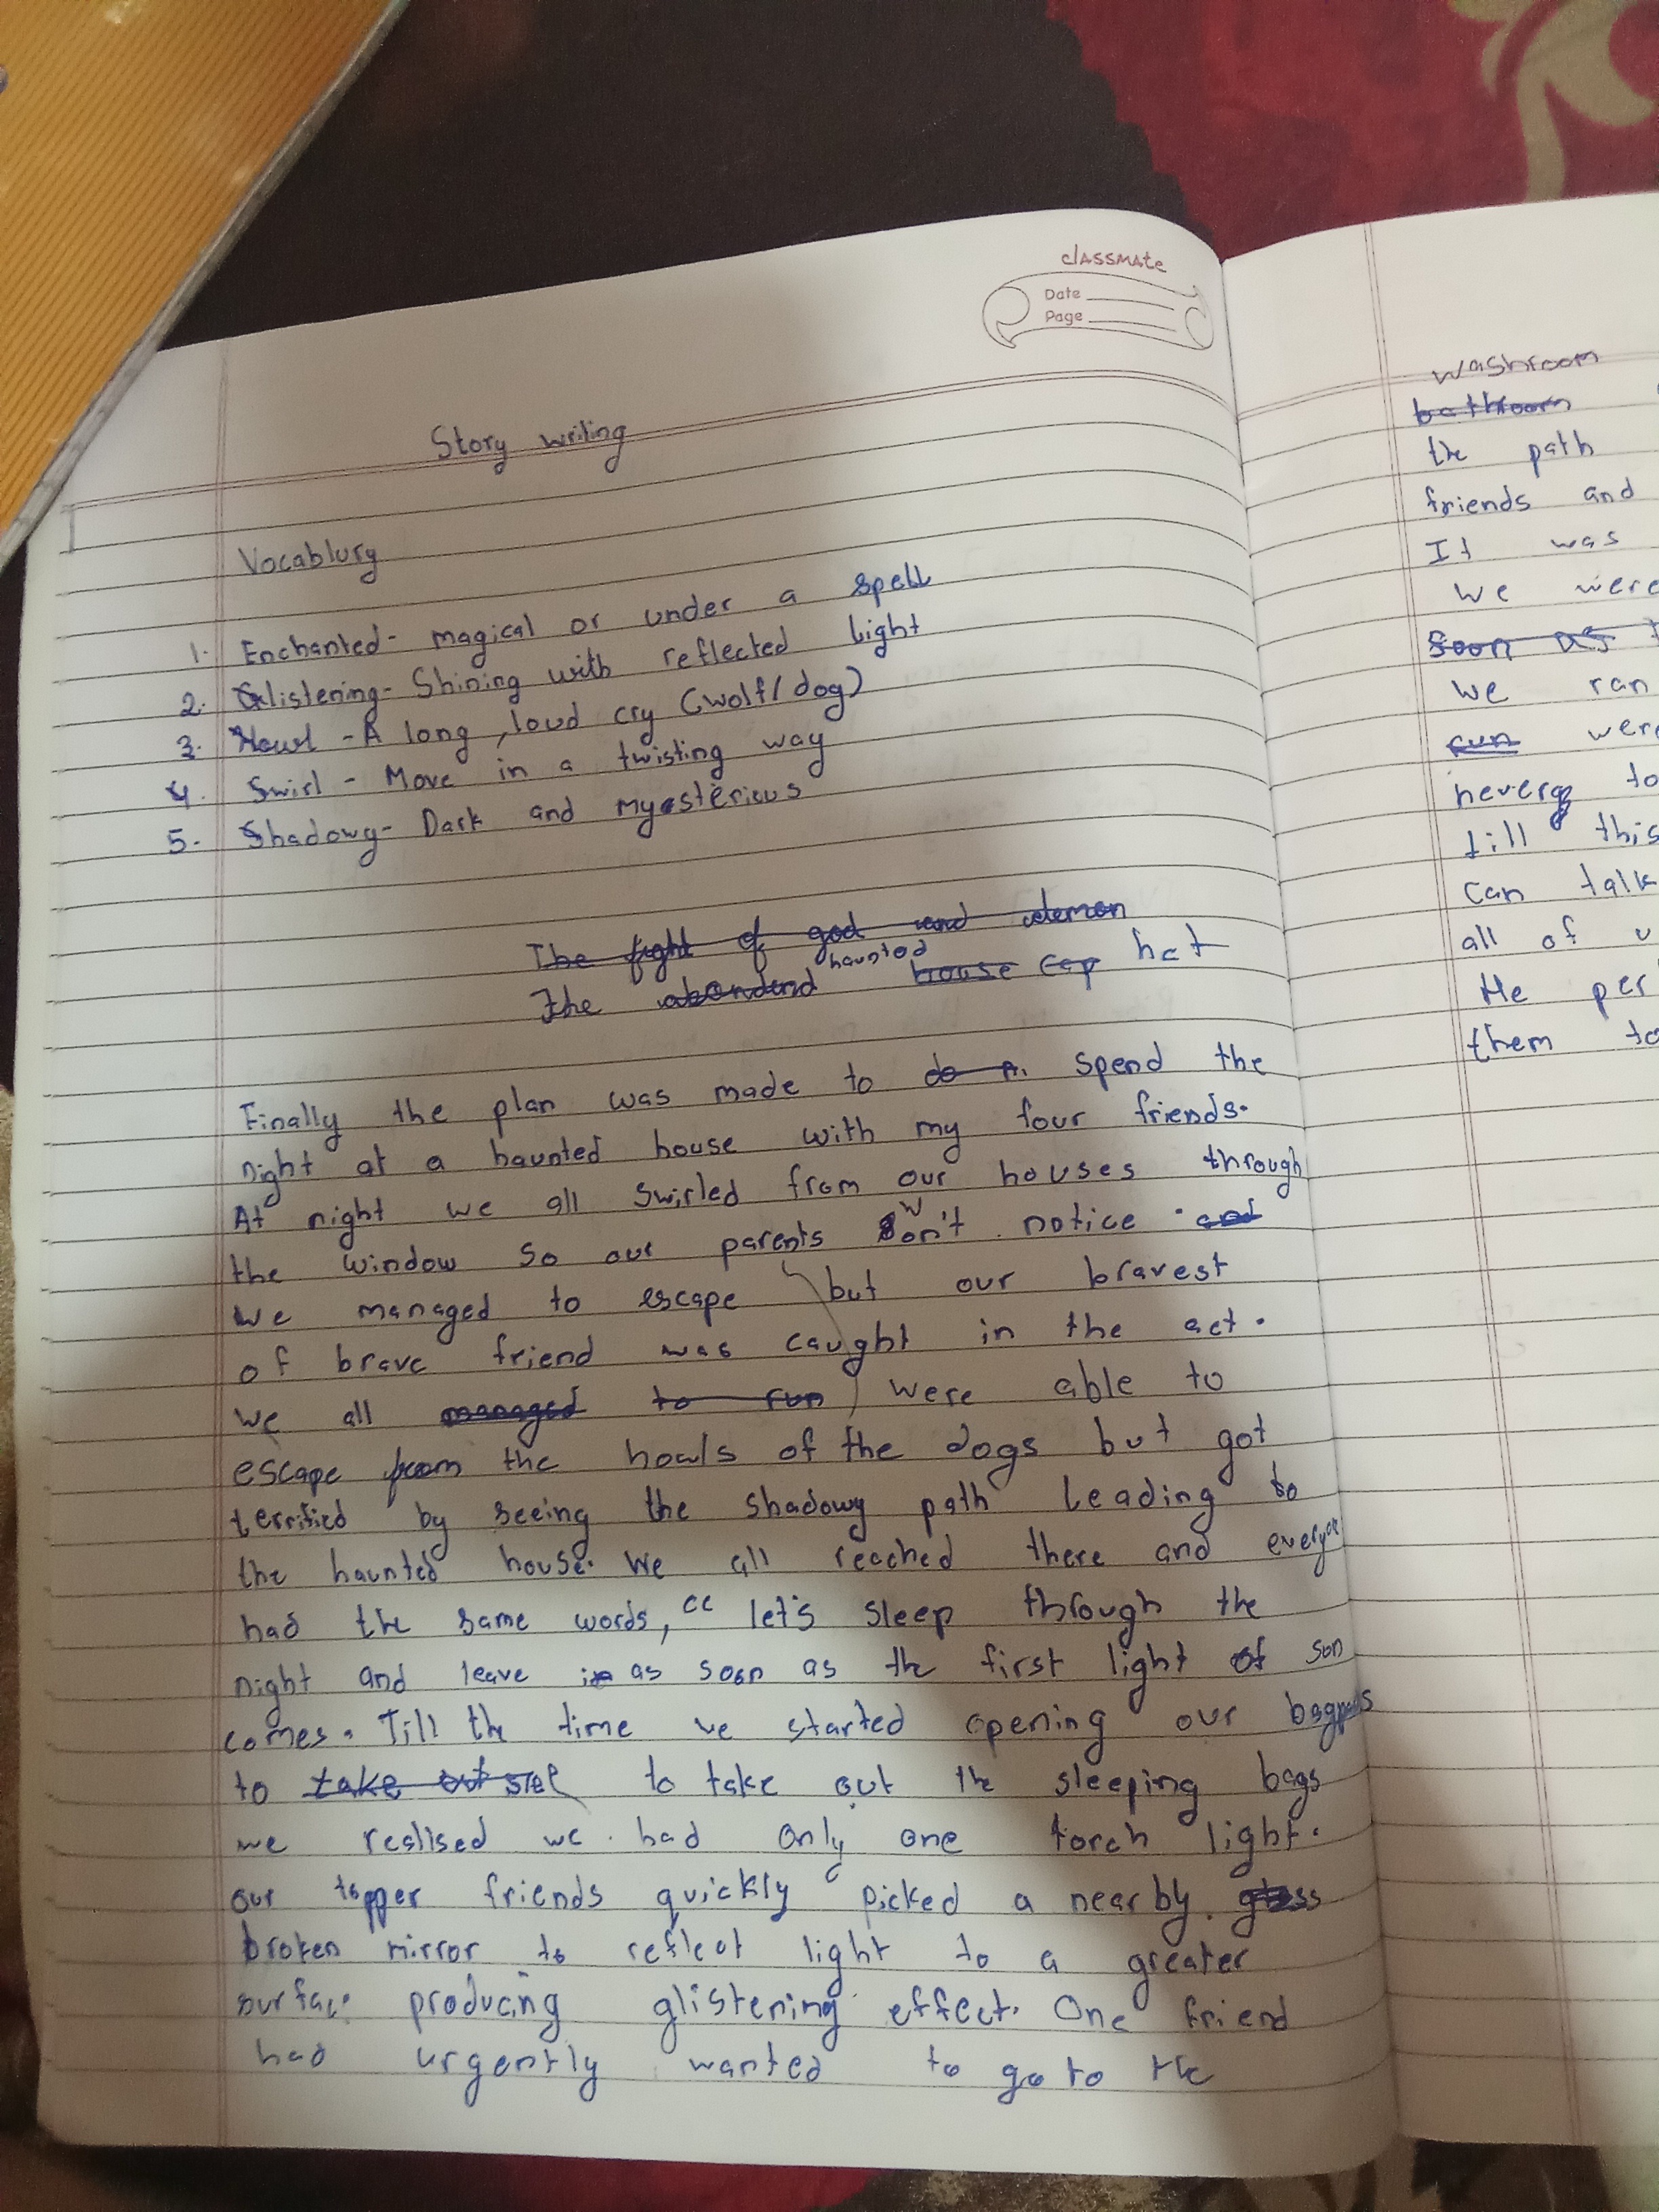 classmate
Date
Page
Story writing
Vocablury
1. Enchanted- magical or under a spell
2. Glistening- Shining with reflected light
3. Howl - A long, loud cry (wolf/dog)
4. Swirl - Move in a twisting way
5. Shadowy- Dark and myesterious
The fight of god and demon
The abondend haunted house cap hat
Finally the plan was made to do spend the
night at a haunted house with my four friends.
At night we all swirled from our houses through
the window so our parents won't notice. and
We managed to escape but our bravest
of brave friend was caught in the act.
We all managed to run were able to
escape from the howls of the dogs but got
terrified by seeing the shadowy path leading to
the haunted house. We all reached there and everyone
had the same words, "let's sleep through the
night and leave in as soon as the first light of sun
comes. Till the time we started opening our
to take out to take out the sleeping bags
we realised we had only one torch light.
our topper friends quickly picked a nearby glass
broken mirror to reflect light to a greater
surface producing glistening effect. One friend
had urgently wanted to go to the
washroom
bathroom
the path
friends and
It was
We were
Soon as
We ran
run were
to
till this
Can talk
all of
He per
them to